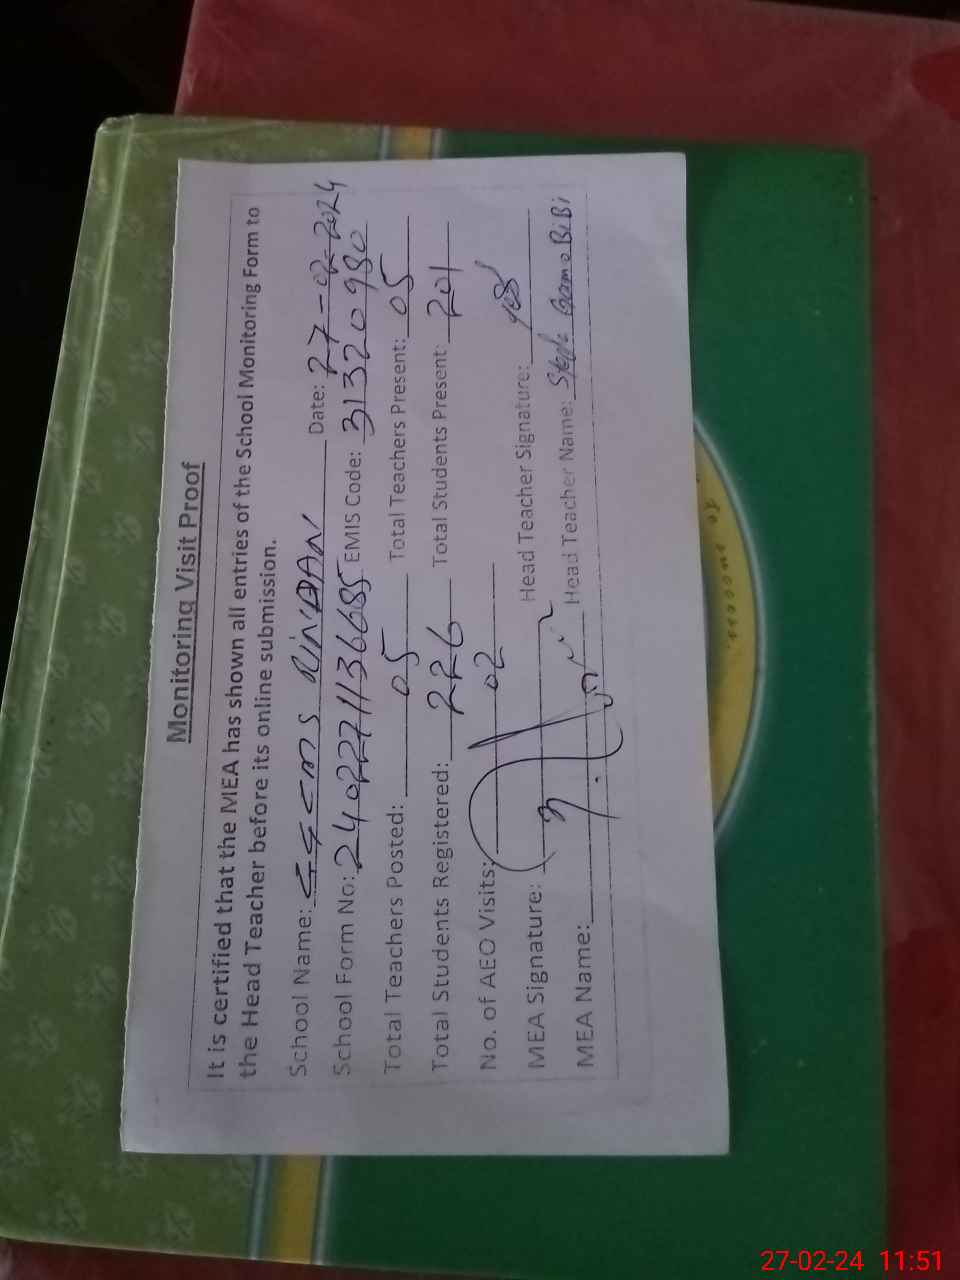 Monitoring Visit Proof
It is certified that the MEA has shown all entries of the School Monitoring Form to
the Head Teacher before its online submission.
School Name: GGCMS Date: 27-02-2024
School Form No: 2402271136685 EMIS Code: 31320980
Total Teachers Posted: 05 Total Teachers Present: 05
Total Students Registered: 226 Total Students Present: 201
No. of AEO Visits: 02
MEA Signature: Head Teacher Signature:
MEA Name: Head Teacher Name: BiBi
27-02-24 11:51